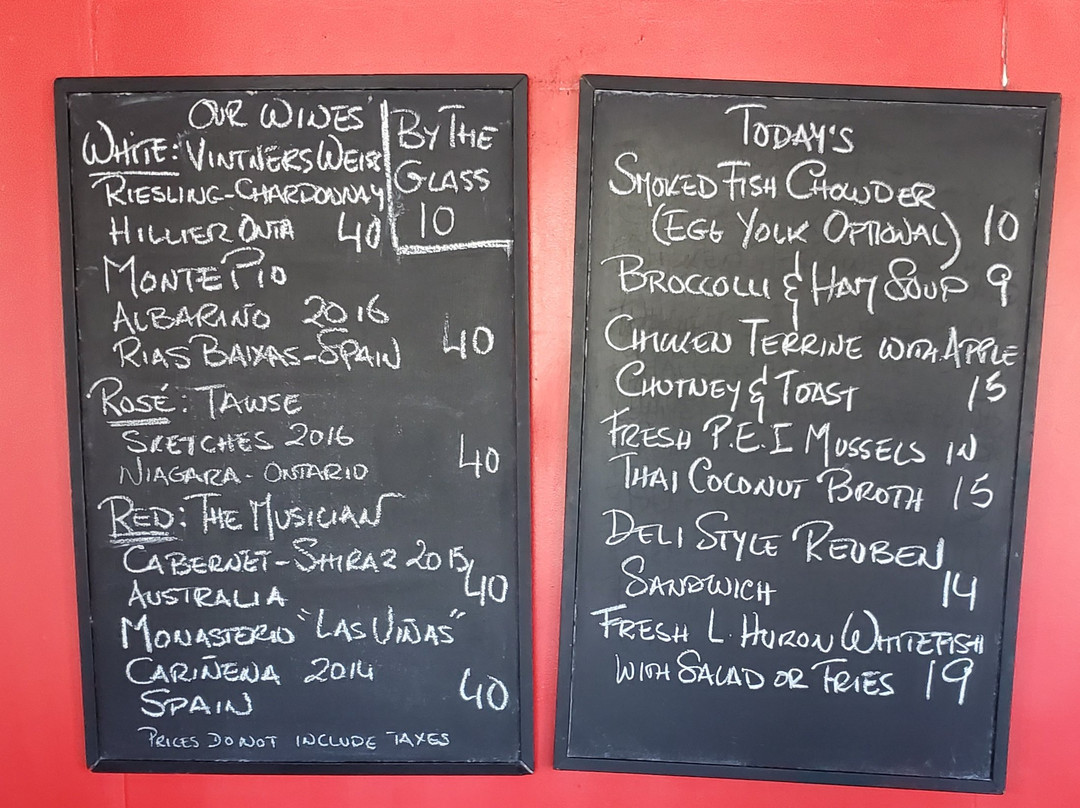 OUR "WINES"
WHITE: VINTNERS WEISS
RIESLING-CHARDONNAY
HILLIER ONTA 40
BY THE
GLASS
10
MONTE PIO
ALBARIÑO 2016
RIAS BAIXAS-SPAIN 40
ROSÉ: TAWSE
SKETCHES 2016
NIAGARA-ONTARIO 40
RED: THE MUSICIAN
CABERNET-SHIRAZ 2015
AUSTRALIA 40
MONASTERIO "LAS VIÑAS"
CARIÑENA 2014
SPAIN 40
PRICES DO NOT INCLUDE TAXES
TODAY'S
SMOKED FISH CHOWDER
(EGG YOLK OPTIONAL) 10
BROCCOLLI & HAM SOUP 9
CHICKEN TERRINE WITH APPLE
CHUTNEY & TOAST 15
FRESH P.E.I MUSSELS IN
THAI COCONUT BROTH 15
DELI STYLE REUBEN
SANDWICH 14
FRESH L. HURON WHITEFISH
WITH SALAD OR FRIES 19